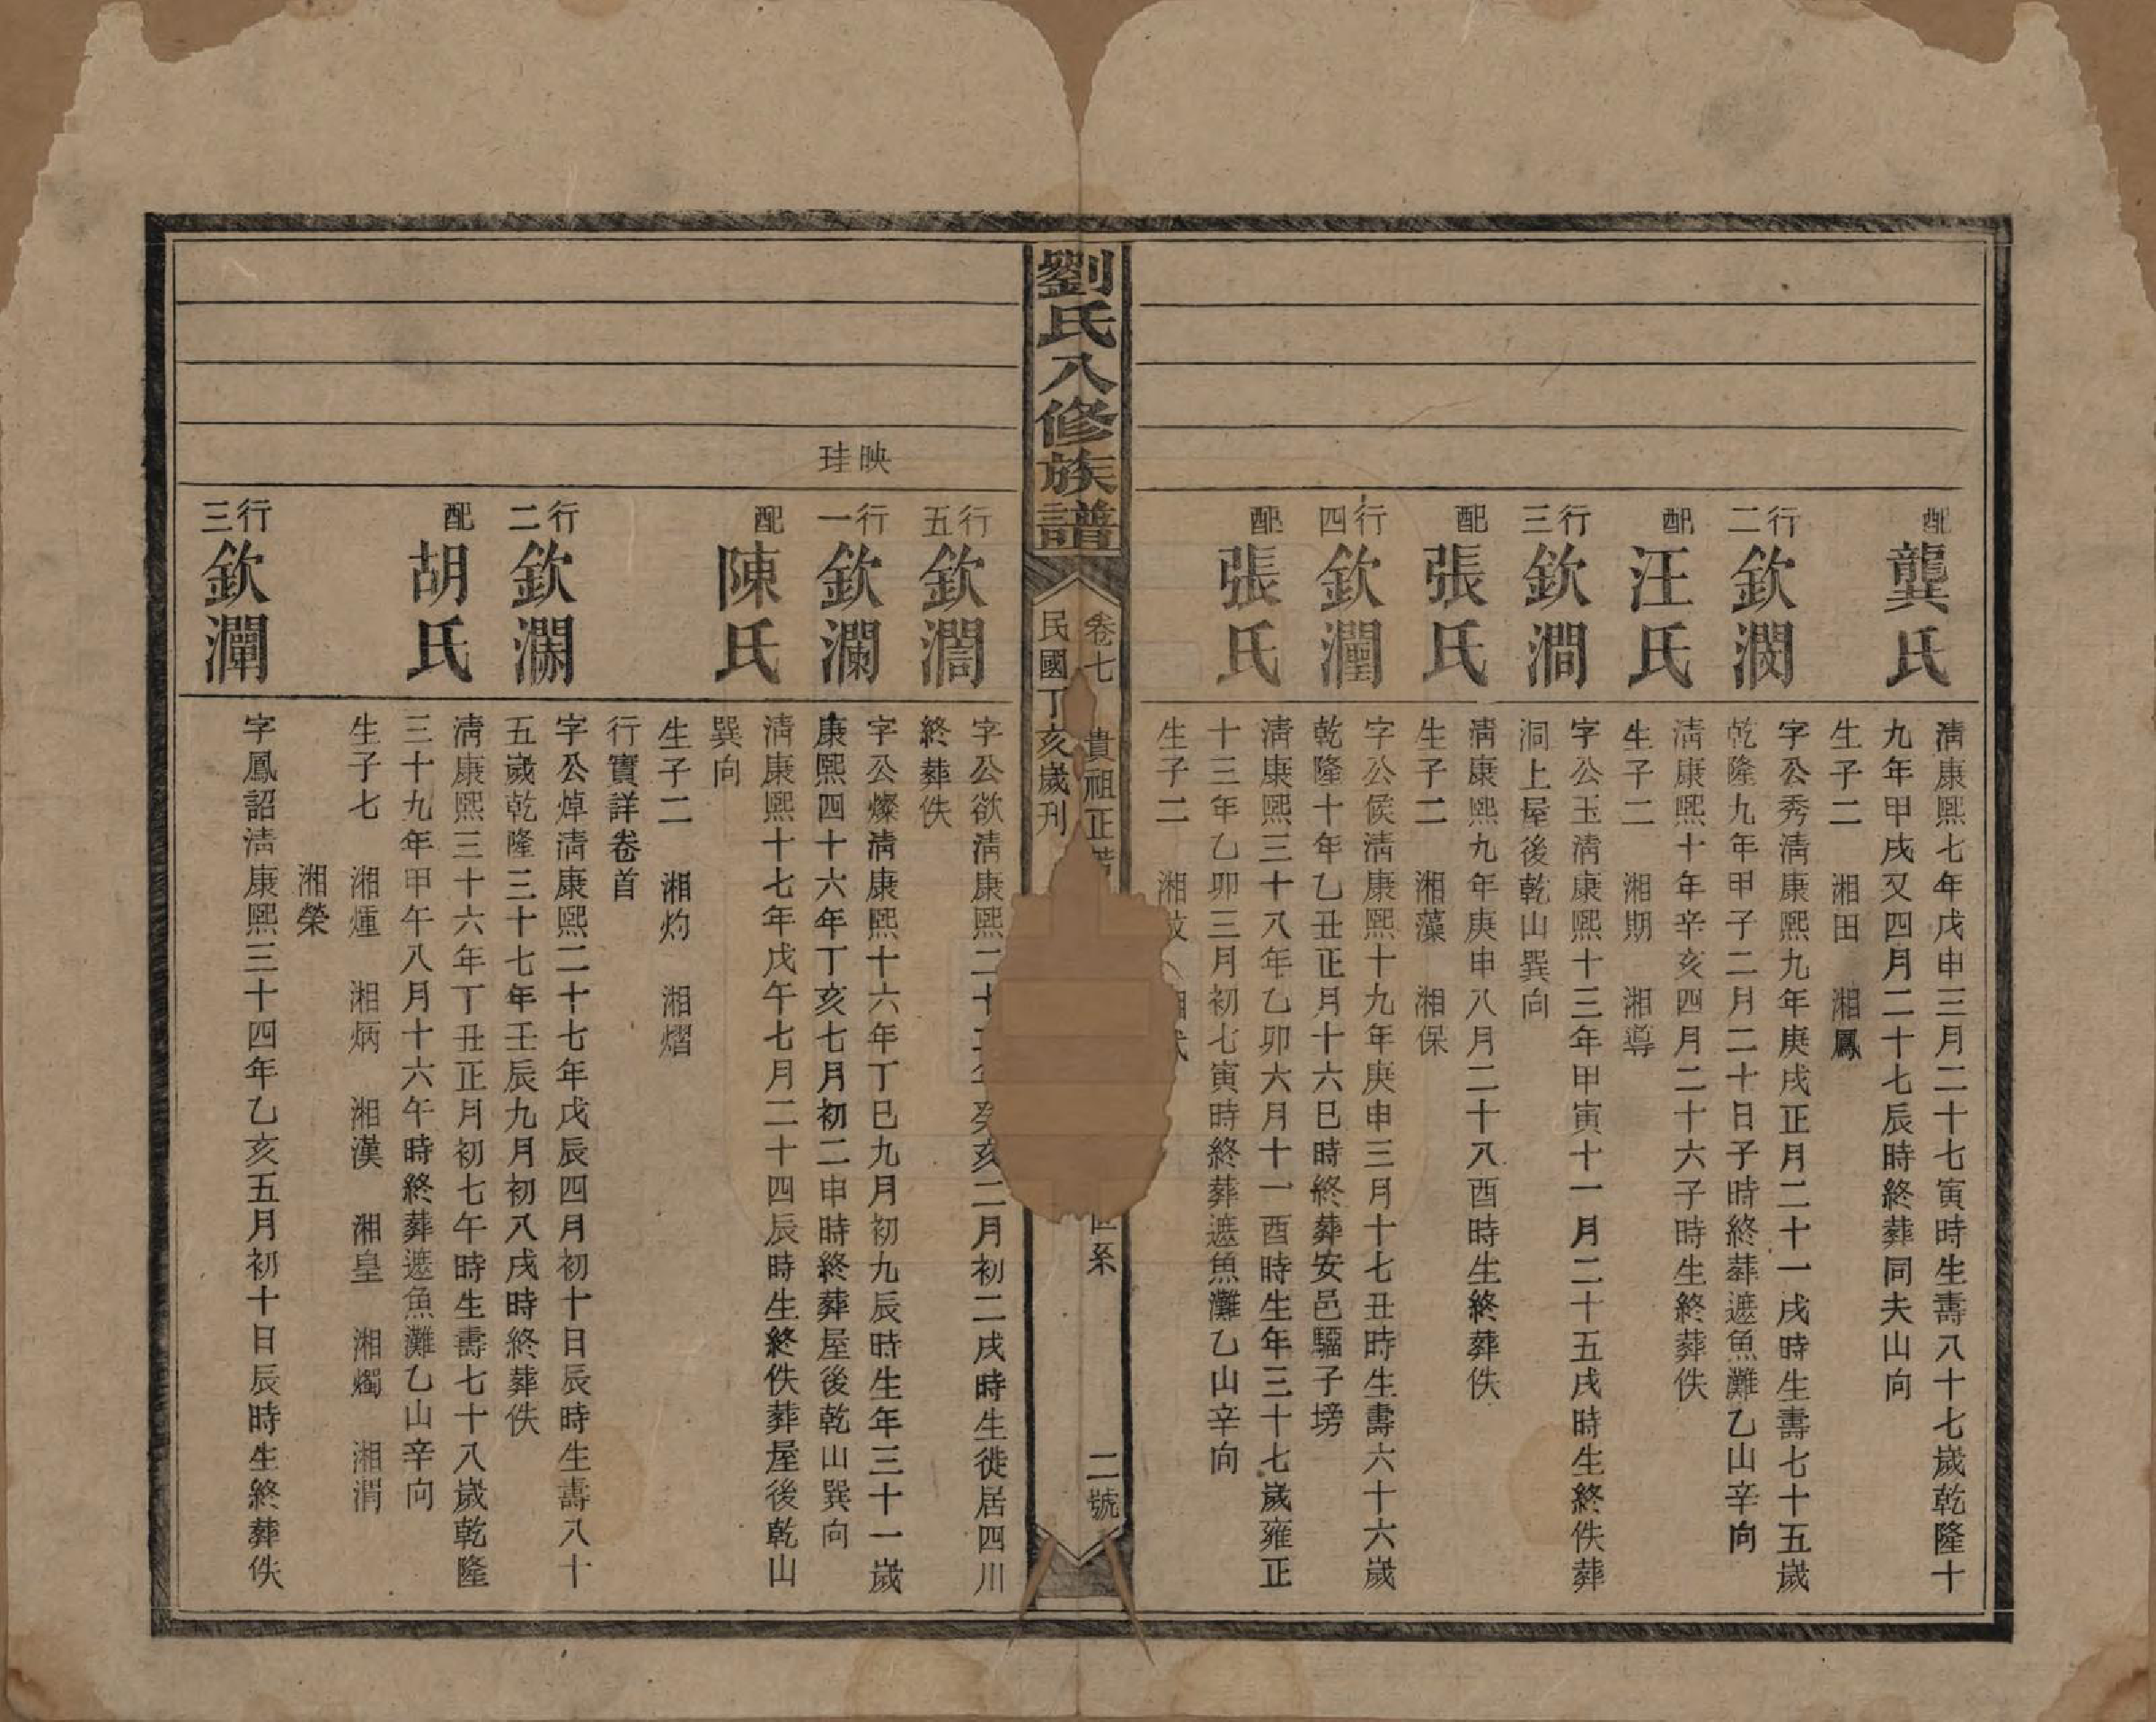 配
龔氏
清康熙七年戊申三月二十七寅時生壽八十七歲乾隆十
九年甲戌又四月二十七辰時終葬同夫山向
生子二　湘田　湘鳳
行二
欽潤
字公秀清康熙九年庚戌正月二十一戌時生壽七十五歲
乾隆九年甲子二月二十日子時終葬遮魚灘乙山辛向
配
汪氏
清康熙十年辛亥四月二十六子時生終葬佚
生子二　湘期　湘導
行三
欽澗
字公玉清康熙十三年甲寅十一月二十五戌時生終佚葬
洞上屋後乾山巽向
配
張氏
清康熙九年庚申八月二十八酉時生終葬佚
生子二　湘藻　湘保
行四
欽瀶
字公俟清康熙十九年庚申三月十七丑時生壽六十六歲
乾隆十年乙丑正月十六巳時終葬安邑騳子塝
配
張氏
清康熙三十八年乙卯六月十一酉時生年三十七歲雍正
十三年乙卯三月初七寅時終葬遮魚灘乙山辛向
生子二　湘　湘
劉氏八修族譜
卷七　貴祖正　世系　二號
民國丁亥歲刊
行五
欽澗
字公欲清康熙二十二年癸亥二月初二戌時生徙居四川
終葬佚
映珪
行一
欽瀾
字公燦清康熙十六年丁巳九月初九辰時生年三十一歲
康熙四十六年丁亥七月初二申時終葬屋後乾山巽向
配
陳氏
清康熙十七年戊午七月二十四辰時生終佚葬屋後乾山
巽向
生子二　湘灼　湘熠
行實詳卷首
行二
欽瀱
字公焯清康熙二十七年戊辰四月初十日辰時生壽八十
五歲乾隆三十七年壬辰九月初八戌時終葬佚
配
胡氏
清康熙三十六年丁丑正月初七午時生壽七十八歲乾隆
三十九年甲午八月十六午時終葬遮魚灘乙山辛向
生子七　湘煄　湘炳　湘漢　湘皇　湘燭　湘渭
湘榮
行三
欽灛
字鳳詔清康熙三十四年乙亥五月初十日辰時生終葬佚